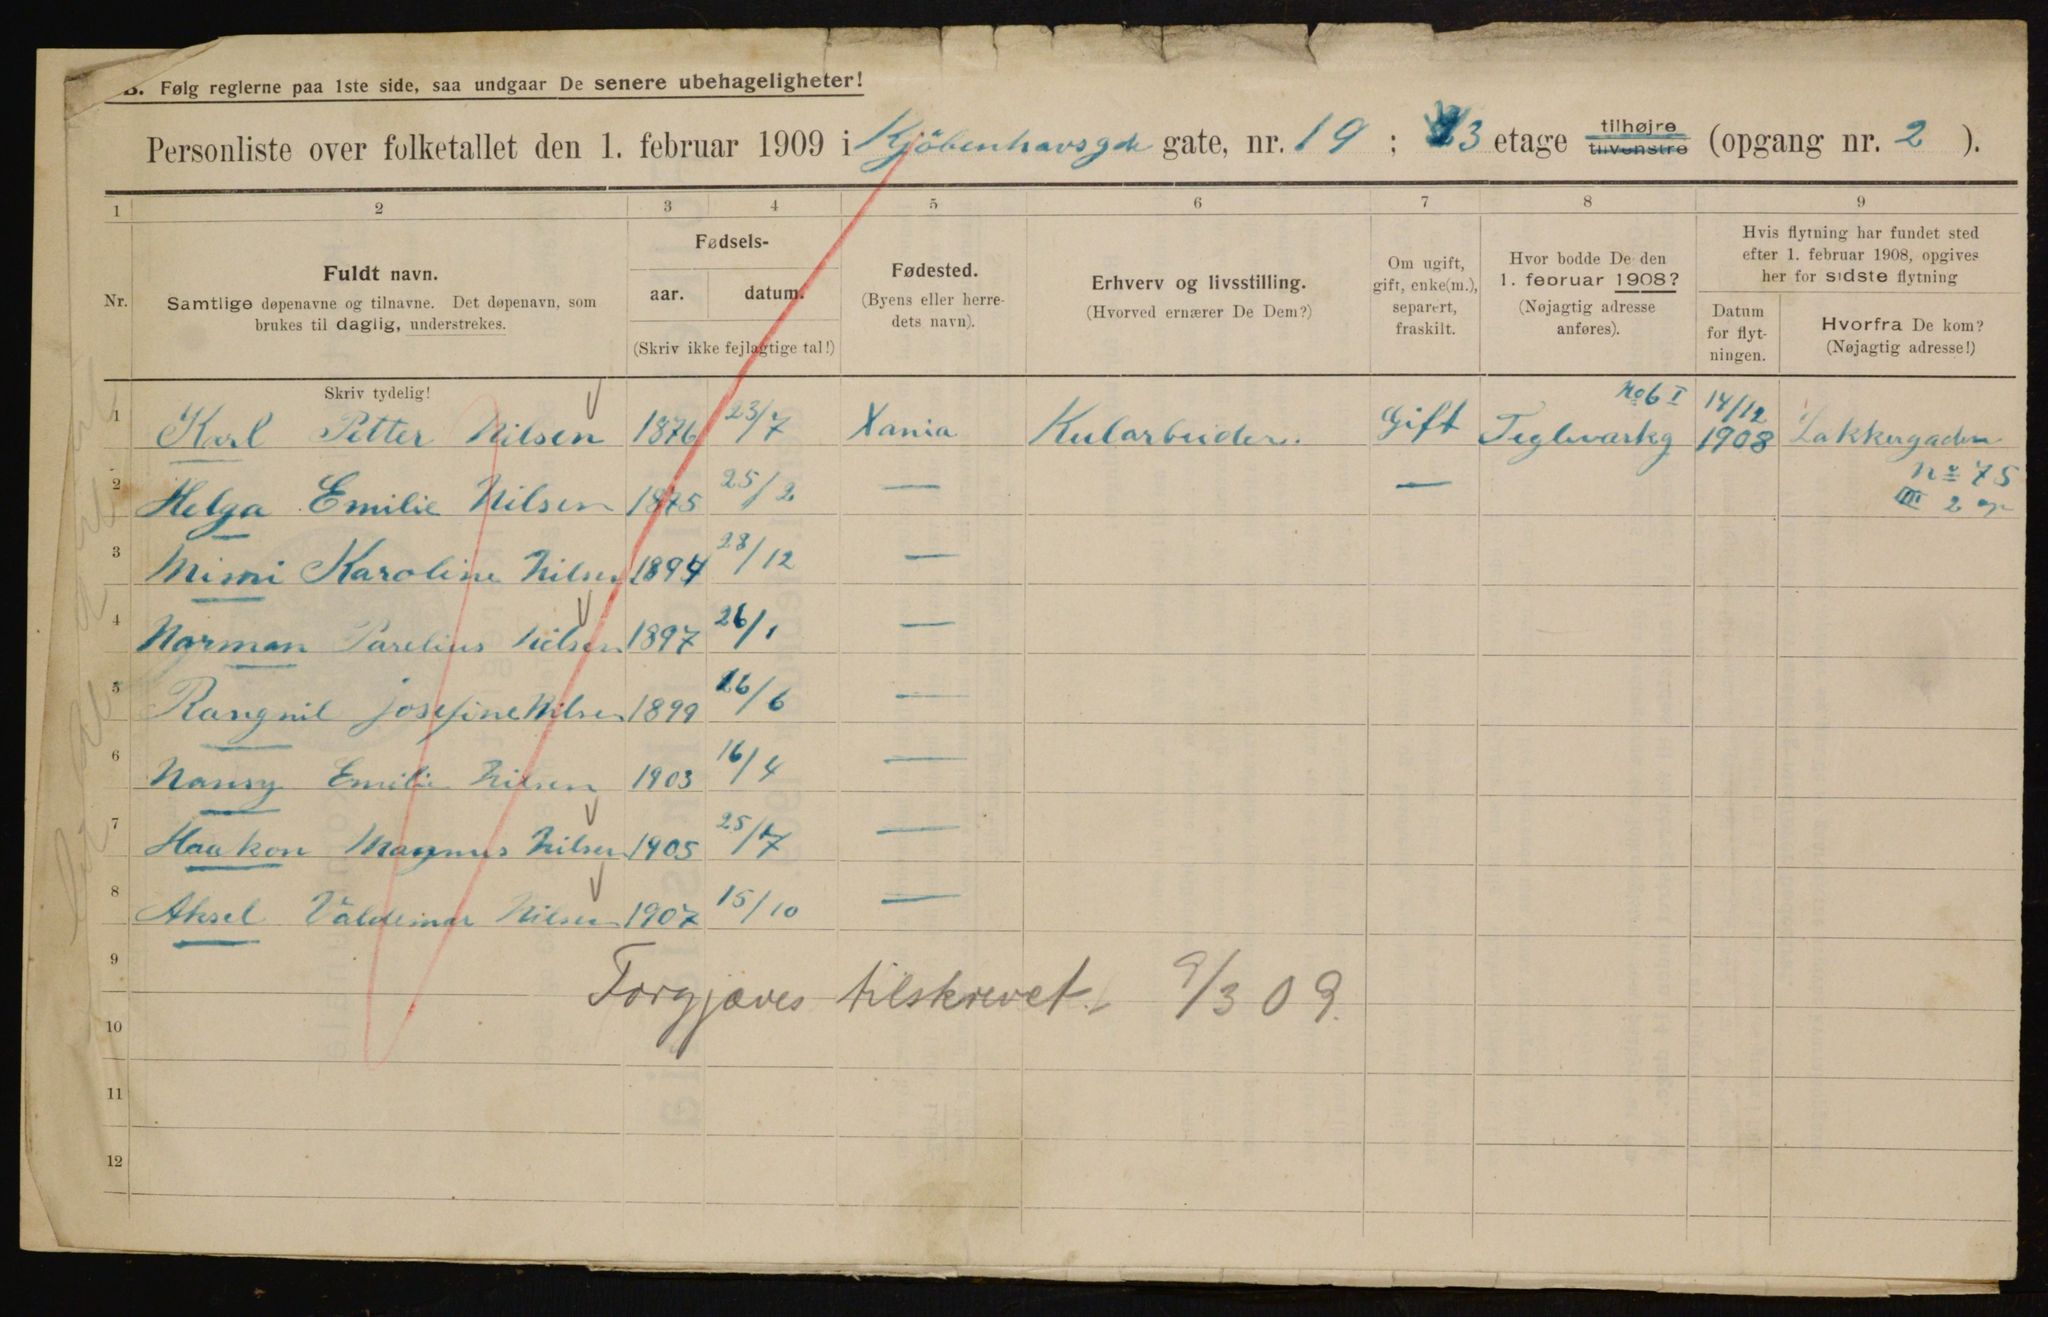 B. Følg reglerne paa 1ste side, saa undgaar De senere ubehageligheter!
Personliste over folketallet den 1. februar 1909 i Kjöbenhavsgde gate, nr. 19 ; 3 etage tilhøjre tilvenstre (opgang nr. 2 ).
1 2 3 4 5 6 7 8 9
Nr.
Fuldt navn.
Samtlige døpenavne og tilnavne. Det døpenavn, som
brukes til daglig, understrekes.
Skriv tydelig!
Fødsels-
aar. datum.
(Skriv ikke fejlagtige tal!)
Fødested.
(Byens eller herre-
dets navn).
Erhverv og livsstilling.
(Hvorved ernærer De Dem?)
Om ugift,
gift, enke(m.),
separert,
fraskilt.
Hvor bodde De den
1. februar 1908?
(Nøjagtig adresse
anføres).
Hvis flytning har fundet sted
efter 1. februar 1908, opgives
her for sidste flytning
Datum
for flyt-
ningen.
Hvorfra De kom?
(Nøjagtig adresse!)
1 Karl Petter Nilsen 1876 23/7 Xania Kularbeider. Gift Teglverkg No 6 I 14/12 1908 Lakkergaden
No 75
III 2 op
2 Helga Emilie Nilsen 1875 25/2 — —
3 Mimi Karoline Nilsen 1894 28/12 —
4 Norman Parelius Nilsen 1897 26/1 —
5 Rangnil Josefine Nilsen 1899 26/6 —
6 Nansy Emilie Nilsen 1903 16/4 —
7 Haakon Magnus Nilsen 1905 25/7 —
8 Aksel Valdemar Nilsen 1907 15/10 —
9
Forgjæves tilskrevet. 9/3 09.
10
11
12